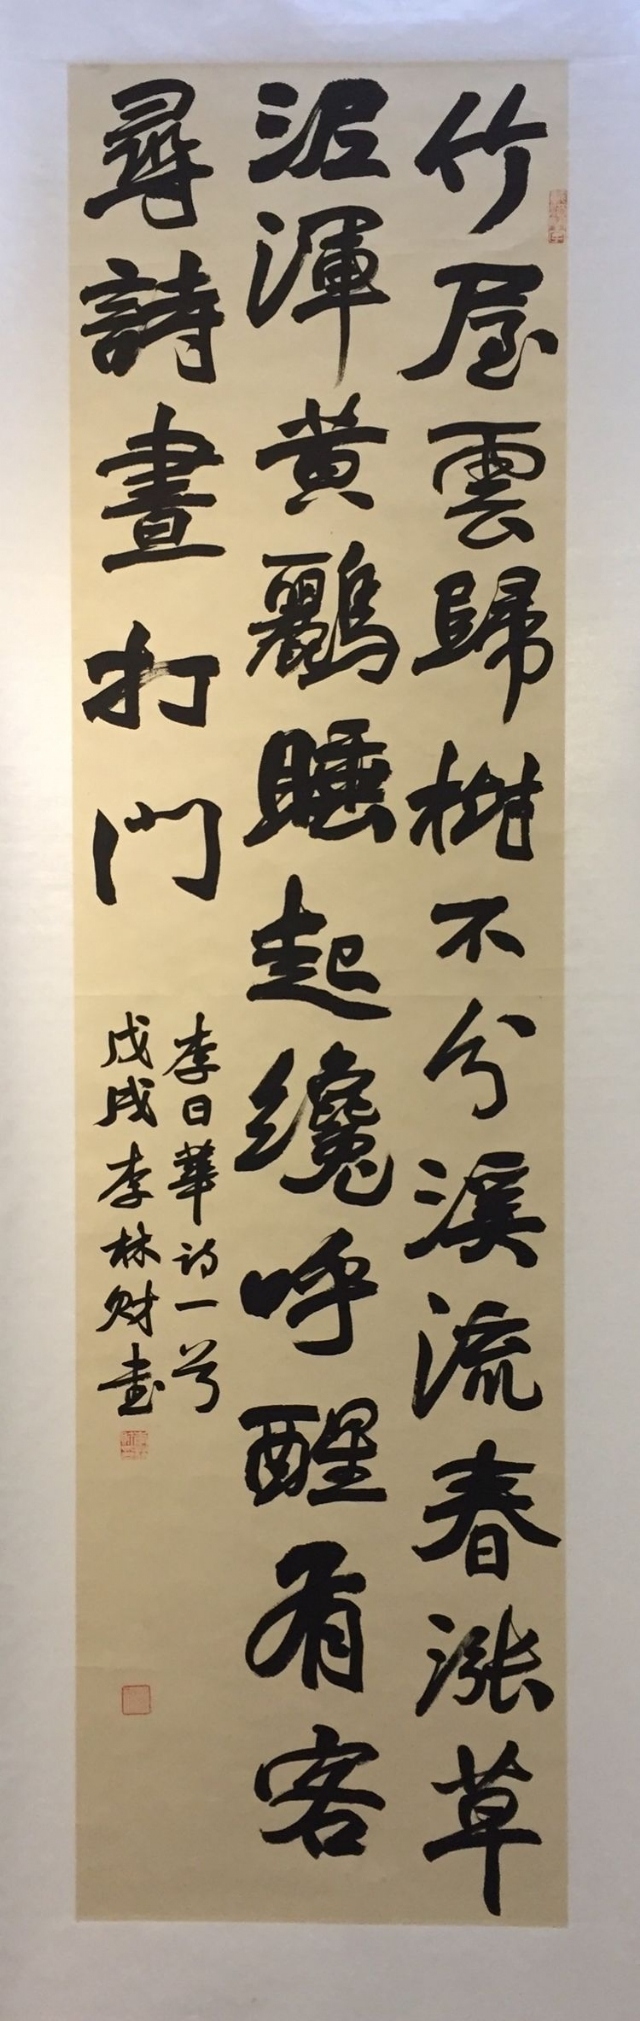 竹屋雲歸樹不分溪流春漲草
泥渾黄鸝睡起纔呼醒有客
尋詩晝打門
李日華诗一首
戊戌李林财書